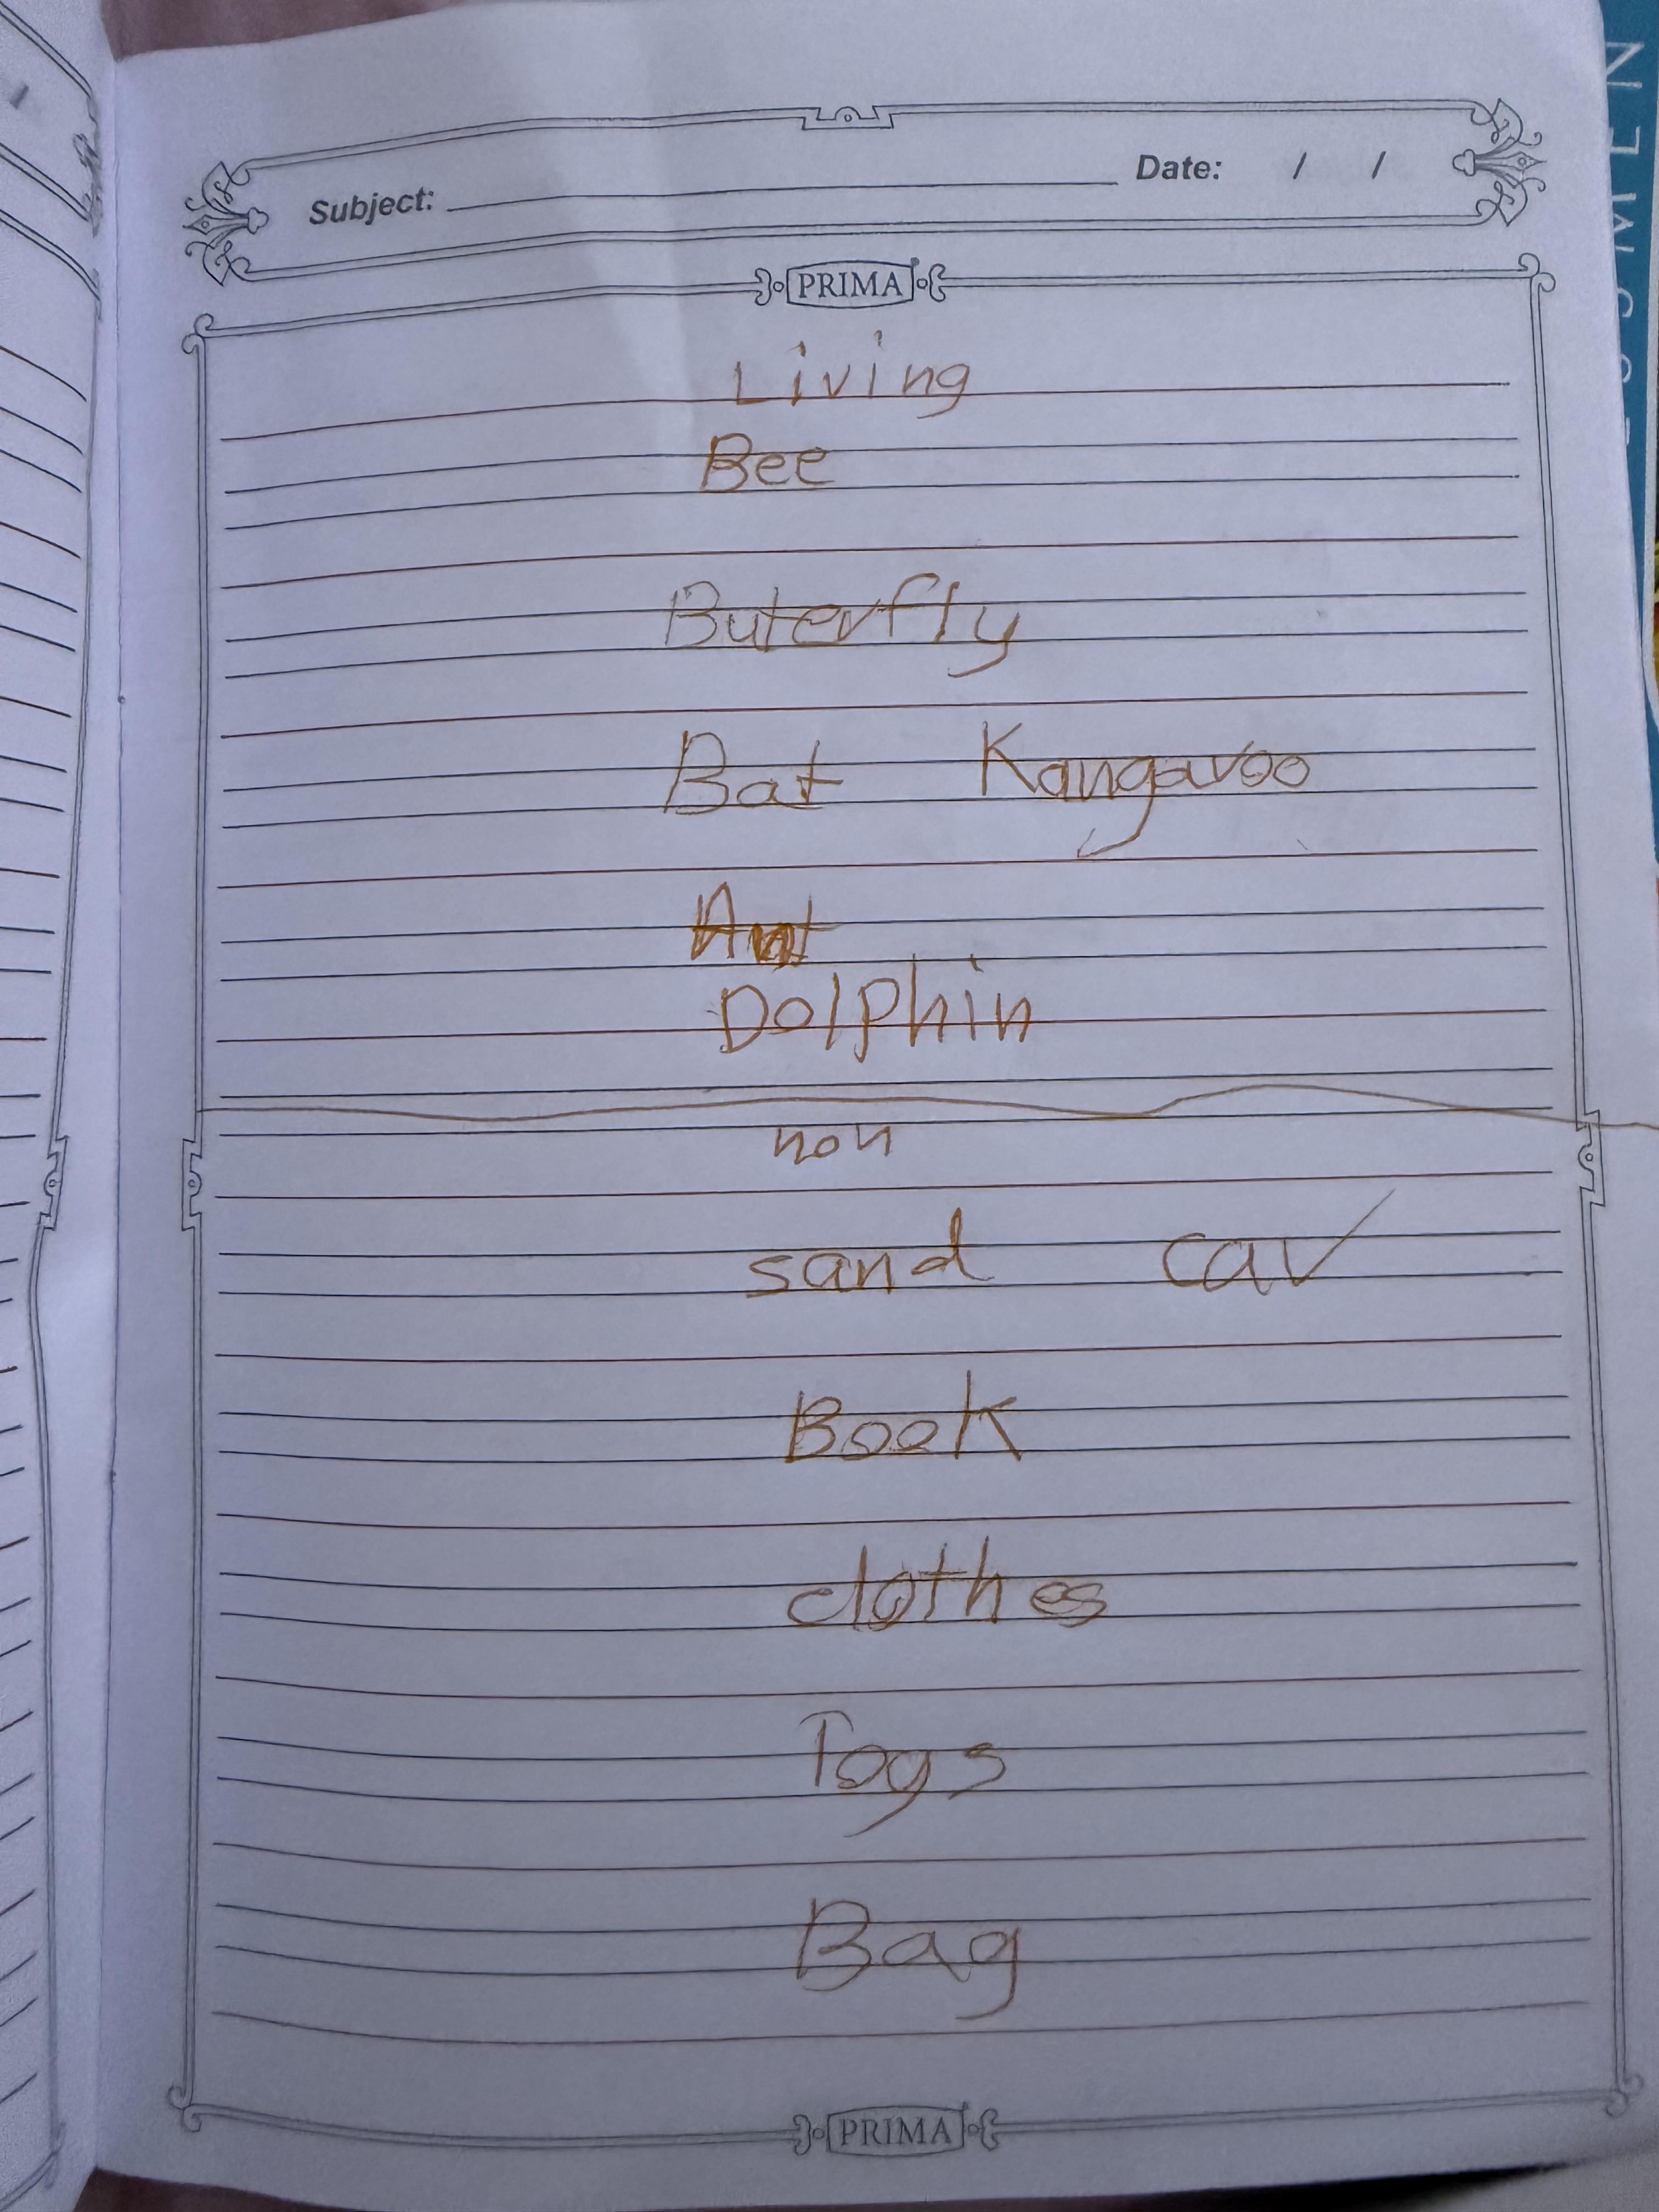 Subject: Date: / /
PRIMA
Living
Bee
Buterfly
Bat Kangaroo
Ant
Dolphin
non
sand car
Book
clothes
Toys
Bag
PRIMA